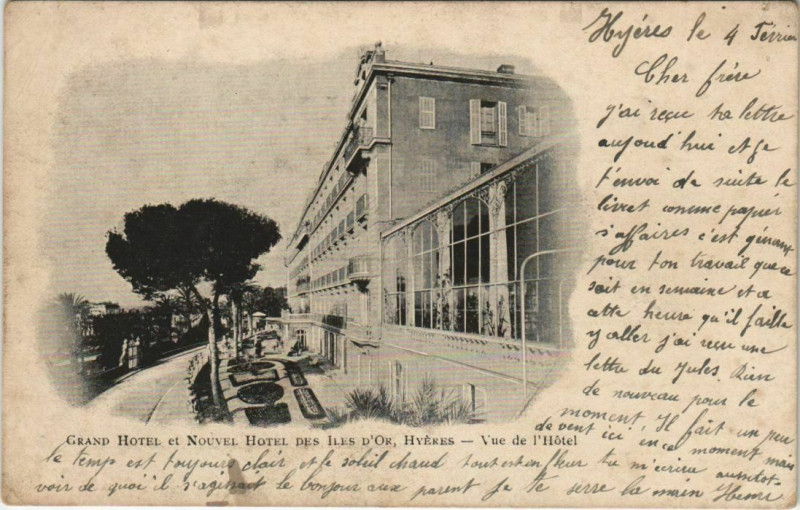 Hyéres le 4 Février
Cher frére
j'ai reçu ta lettre
aujourd'hui et je
t'envoi de suite le
livret comme papier
d'affaires c'est gênant
pour ton travail que ce
soit en semaine et a
cette heure qu'il faille
y aller j'ai reçu une
lettre du Jules. Rien
de nouveau pour le
moment Il fait un peu
de vent ici en ce moment mais
GRAND HOTEL et NOUVEL HOTEL DES ILES D'OR, HYÈRES — Vue de l'Hôtel
le temp est toujours clair et le soleil chaud tout est en fleur tu m'écrira aussitot
voir de quoi il s'agissait le bonjour aux parent je te serre la main Henri